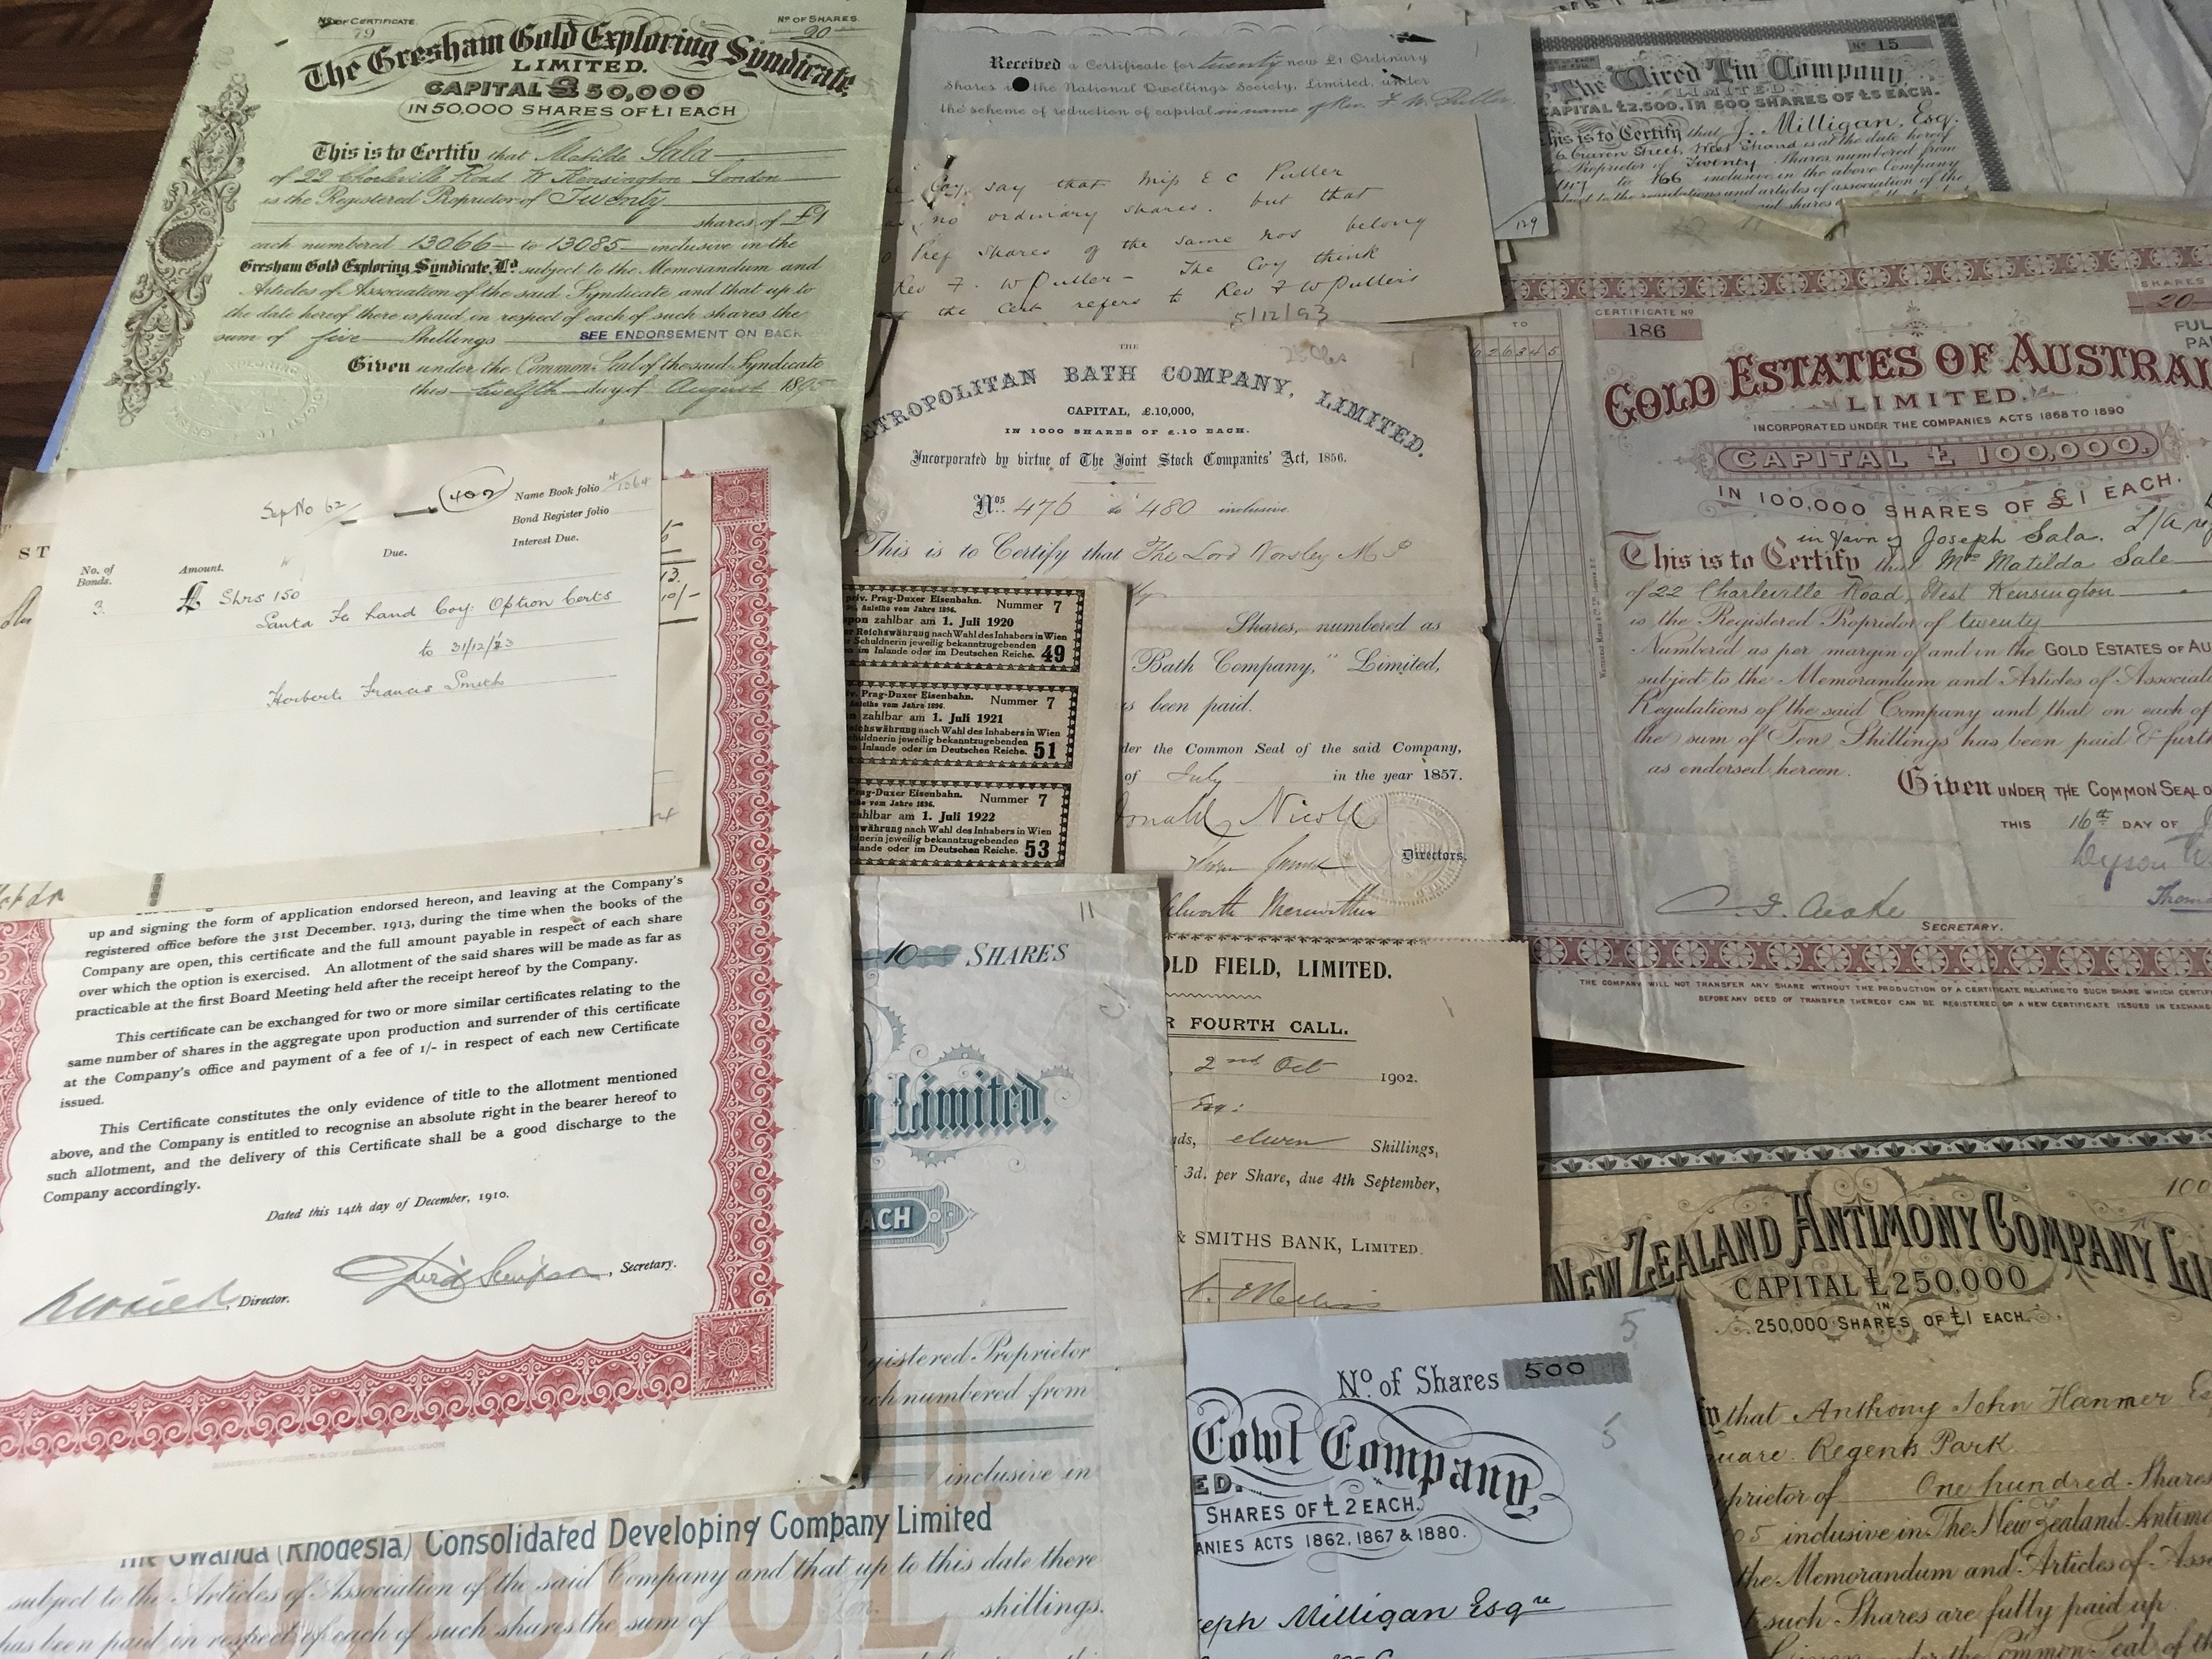 No OF CERTIFICATE.
79
No OF SHARES
20
The Gresham Gold Exploring Syndicate,
LIMITED.
CAPITAL £50,000
IN 50,000 SHARES OF £1 EACH
This is to Certify that Matilda Sala
of 22 Charleville Road W. Kensington London
is the Registered Proprietor of Twenty
shares of £1
each numbered 13066 to 13085 inclusive in the
Gresham Gold Exploring Syndicate, Ld subject to the Memorandum and
Articles of Association of the said Syndicate and that up to
the date hereof there is paid in respect of each of such shares the
sum of five Shillings
SEE ENDORSEMENT ON BACK
Given under the Common Seal of the said Syndicate
this twelfth day of August 1895
Received a Certificate for twenty new £1 Ordinary
Shares in the National Dwellings Society, Limited, under
the scheme of reduction of capital in name of Rev. F. W. Puller.
Coy. say that Miss E C Puller
no ordinary shares. but that
Pref shares of the same nos belong
Rev F. W Puller - The Coy think
the Cert refers to Rev F W Pullers
5/12/93
129
No 15
The Wired Tin Company
LIMITED.
CAPITAL £2,500, IN 500 SHARES OF £5 EACH.
This is to Certify that J. Milligan, Esq.
6 Craven Street, West Strand is at the date hereof
Proprietor of Twenty Shares numbered from
147 to 166 inclusive in the above Company
subject to the regulations and articles of association of the
THE
ETROPOLITAN BATH COMPANY, LIMITED.
CAPITAL, £.10,000,
IN 1000 SHARES OF £.10 EACH.
Incorporated by virtue of The Joint Stock Companies' Act, 1856.
Nos. 476 to 480 inclusive.
This is to Certify that The Lord Worsley M P
Shares, numbered as
Bath Company," Limited,
s been paid.
der the Common Seal of the said Company,
of July in the year 1857.
Donald Nicoll
Directors.
TO
626345
CERTIFICATE No
186
SHARES
20
FUL
PA
GOLD ESTATES OF AUSTRA
LIMITED.
INCORPORATED UNDER THE COMPANIES ACTS 1868 TO 1890
CAPITAL £ 100,000.
IN 100,000 SHARES OF £1 EACH.
in favor of Joseph Sala.
This is to Certify that Mrs Matilda Sale
of 22 Charleville Road, West Kensington
is the Registered Proprietor of twenty
Numbered as per margin of and in the GOLD ESTATES OF AU
subject to the Memorandum and Articles of Associati
Regulations of the said Company and that on each of
the sum of Ten Shillings has been paid & furt
as endorsed hereon.
Given UNDER THE COMMON SEAL O
THIS 16th DAY OF
SECRETARY.
THE COMPANY WILL NOT TRANSFER ANY SHARE WITHOUT THE PRODUCTION OF A CERTIFICATE RELATING TO SUCH SHARE WHICH CERTIF
BEFORE ANY DEED OF TRANSFER THEREOF CAN BE REGISTERED OR A NEW CERTIFICATE ISSUED IN EXCHANGE
ST
Sep No 62
402
Name Book folio
Bond Register folio
Interest Due.
No. of Bonds.
Amount.
Due.
3.
£ Shrs 150
Santa Fe Land Coy: Option Certs
to 31/12/13
Herbert Francis Smith
up and signing the form of application endorsed hereon, and leaving at the Company's
registered office before the 31st December, 1913, during the time when the books of the
Company are open, this certificate and the full amount payable in respect of each share
over which the option is exercised. An allotment of the said shares will be made as far as
practicable at the first Board Meeting held after the receipt hereof by the Company.
This certificate can be exchanged for two or more similar certificates relating to the
same number of shares in the aggregate upon production and surrender of this certificate
at the Company's office and payment of a fee of 1/- in respect of each new Certificate
issued.
This Certificate constitutes the only evidence of title to the allotment mentioned
above, and the Company is entitled to recognise an absolute right in the bearer hereof to
such allotment, and the delivery of this Certificate shall be a good discharge to the
Company accordingly.
Dated this 14th day of December, 1910.
Director.
David Simpson, Secretary.
priv. Prag-Duxer Eisenbahn. Nummer 7
Anleihe vom Jahre 1896.
pon zahlbar am 1. Juli 1920
r Reichswährung nach Wahl des Inhabers in Wien
Schuldnerin jeweilig bekanntzugebenden
im Inlande oder im Deutschen Reiche. 49
v. Prag-Duxer Eisenbahn. Nummer 7
Anleihe vom Jahre 1896.
n zahlbar am 1. Juli 1921
ichswährung nach Wahl des Inhabers in Wien
huldnerin jeweilig bekanntzugebenden
Inlande oder im Deutschen Reiche. 51
Prag-Duxer Eisenbahn. Nummer 7
eihe vom Jahre 1896.
zahlbar am 1. Juli 1922
swährung nach Wahl des Inhabers in Wien
dnerin jeweilig bekanntzugebenden
lande oder im Deutschen Reiche. 53
11
10 SHARES
Limited.
ACH
gistered Proprietor
ch numbered from
inclusive in
The Gwanda (Rhodesia) Consolidated Developing Company Limited
subject to the Articles of Association of the said Company and that up to this date there
has been paid in respect of each of such shares the sum of shillings.
OLD FIELD, LIMITED.
R FOURTH CALL.
2nd Oct 1902.
Esq:
ds, eleven Shillings,
3d. per Share, due 4th September,
& SMITHS BANK, LIMITED.
5
No. of Shares 500
5
Cowl Company,
ED.
SHARES OF £2 EACH.
ANIES ACTS 1862, 1867 & 1880.
eph Milligan Esqre
100
NEW ZEALAND ANTIMONY COMPANY LI
CAPITAL £250,000
IN
250,000 SHARES OF £1 EACH.
that Anthony John Hanmer Es
quare Regents Park
oprietor of One hundred Shares
05 inclusive in The New Zealand Antimo
the Memorandum and Articles of Asso
such Shares are fully paid up.
the Common Seal of th